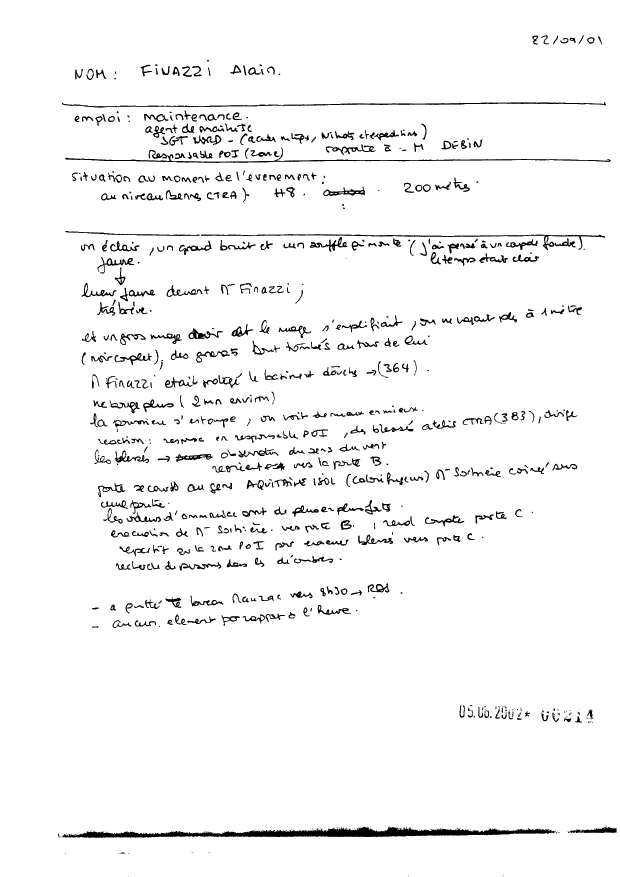 22/09/01
NOM : FINAZZI Alain.
emploi : maintenance.
agent de maîtrise
SGT NORD - (acides nitriques, Nitrates et expéditions)
Responsable POI (Zone) rapporte à - M DEBIN
Situation au moment de l'evenement :
au niveau Benne CTRA) H8. 200 mètres.
un éclair, un grand bruit et un souffle qui monte (j'ai pensé à un coup de foudre)
jaune. le temps était clair
lueur jaune devant Mr Finazzi ;
très brève.
et un gros nuage noir et le nuage s'emplifiait, on ne voyait pas à 1 mètre
(noir complet), des gravats sont tombés autour de lui
M Finazzi etait protégé le batiment douches → (364).
ne bouge plus (2mn environ)
la poussière s'estompe, on voit de mieux en mieux.
reaction : responsable POI, des blessés atelier CTRA (383), dirige
les blessés → observation du sens du vent
vers la porte B.
porte secours au gens AQUITAINE ISOL (Calorifugeurs) Mr Sorbrière coincé sous
une poutre.
les odeurs d'ammoniac sont de plus en plus forts.
evacuation de Mr Sorbrière vers porte B, rend compte porte C.
repartit sur la zone POI pour evacuer blessés vers porte C.
recherche de personnes dans les décombres.
- a quitté le bureau Mauzac vers 8h30 → RAS.
- aucun element par rapport à l'heure.
05.06.2002* 00214